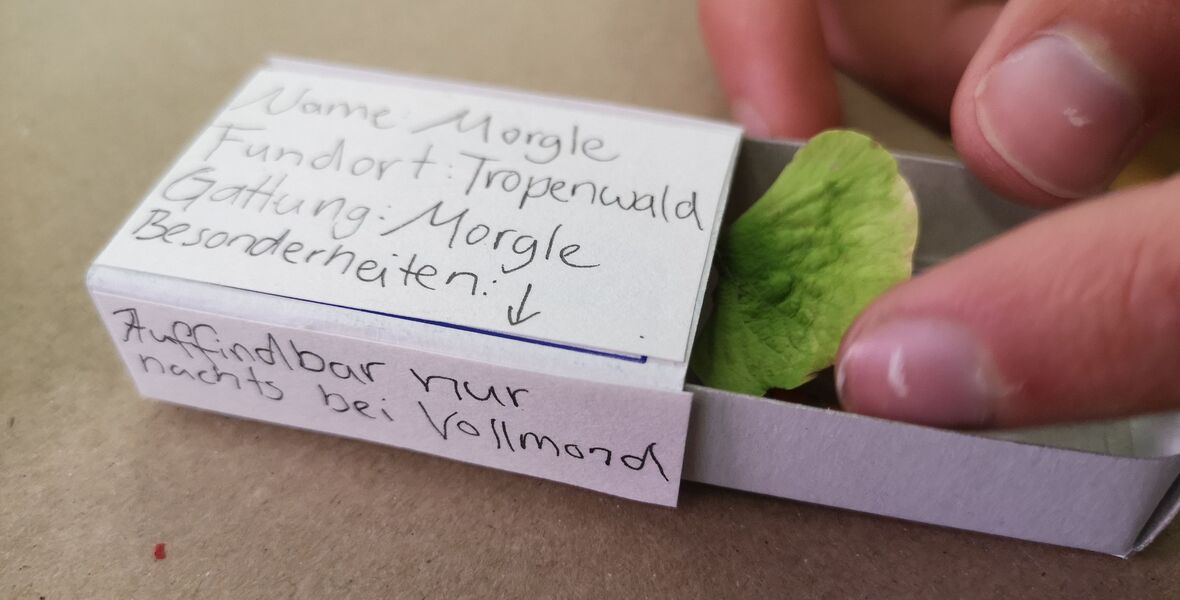 Name: Morgle
Fundort: Tropenwald
Gattung: Morgle
Besonderheiten: ↓
Auffindbar nur
nachts bei Vollmond